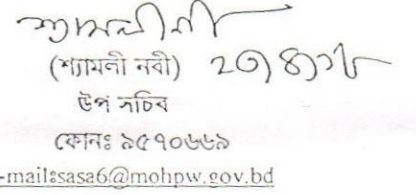 শ্যামলী নবী
(শ্যামলী নবী)
উপ সচিব
ফোনঃ ৯৫৭০৬৬৯
-mailঃsasa6@mohpw.gov.bd